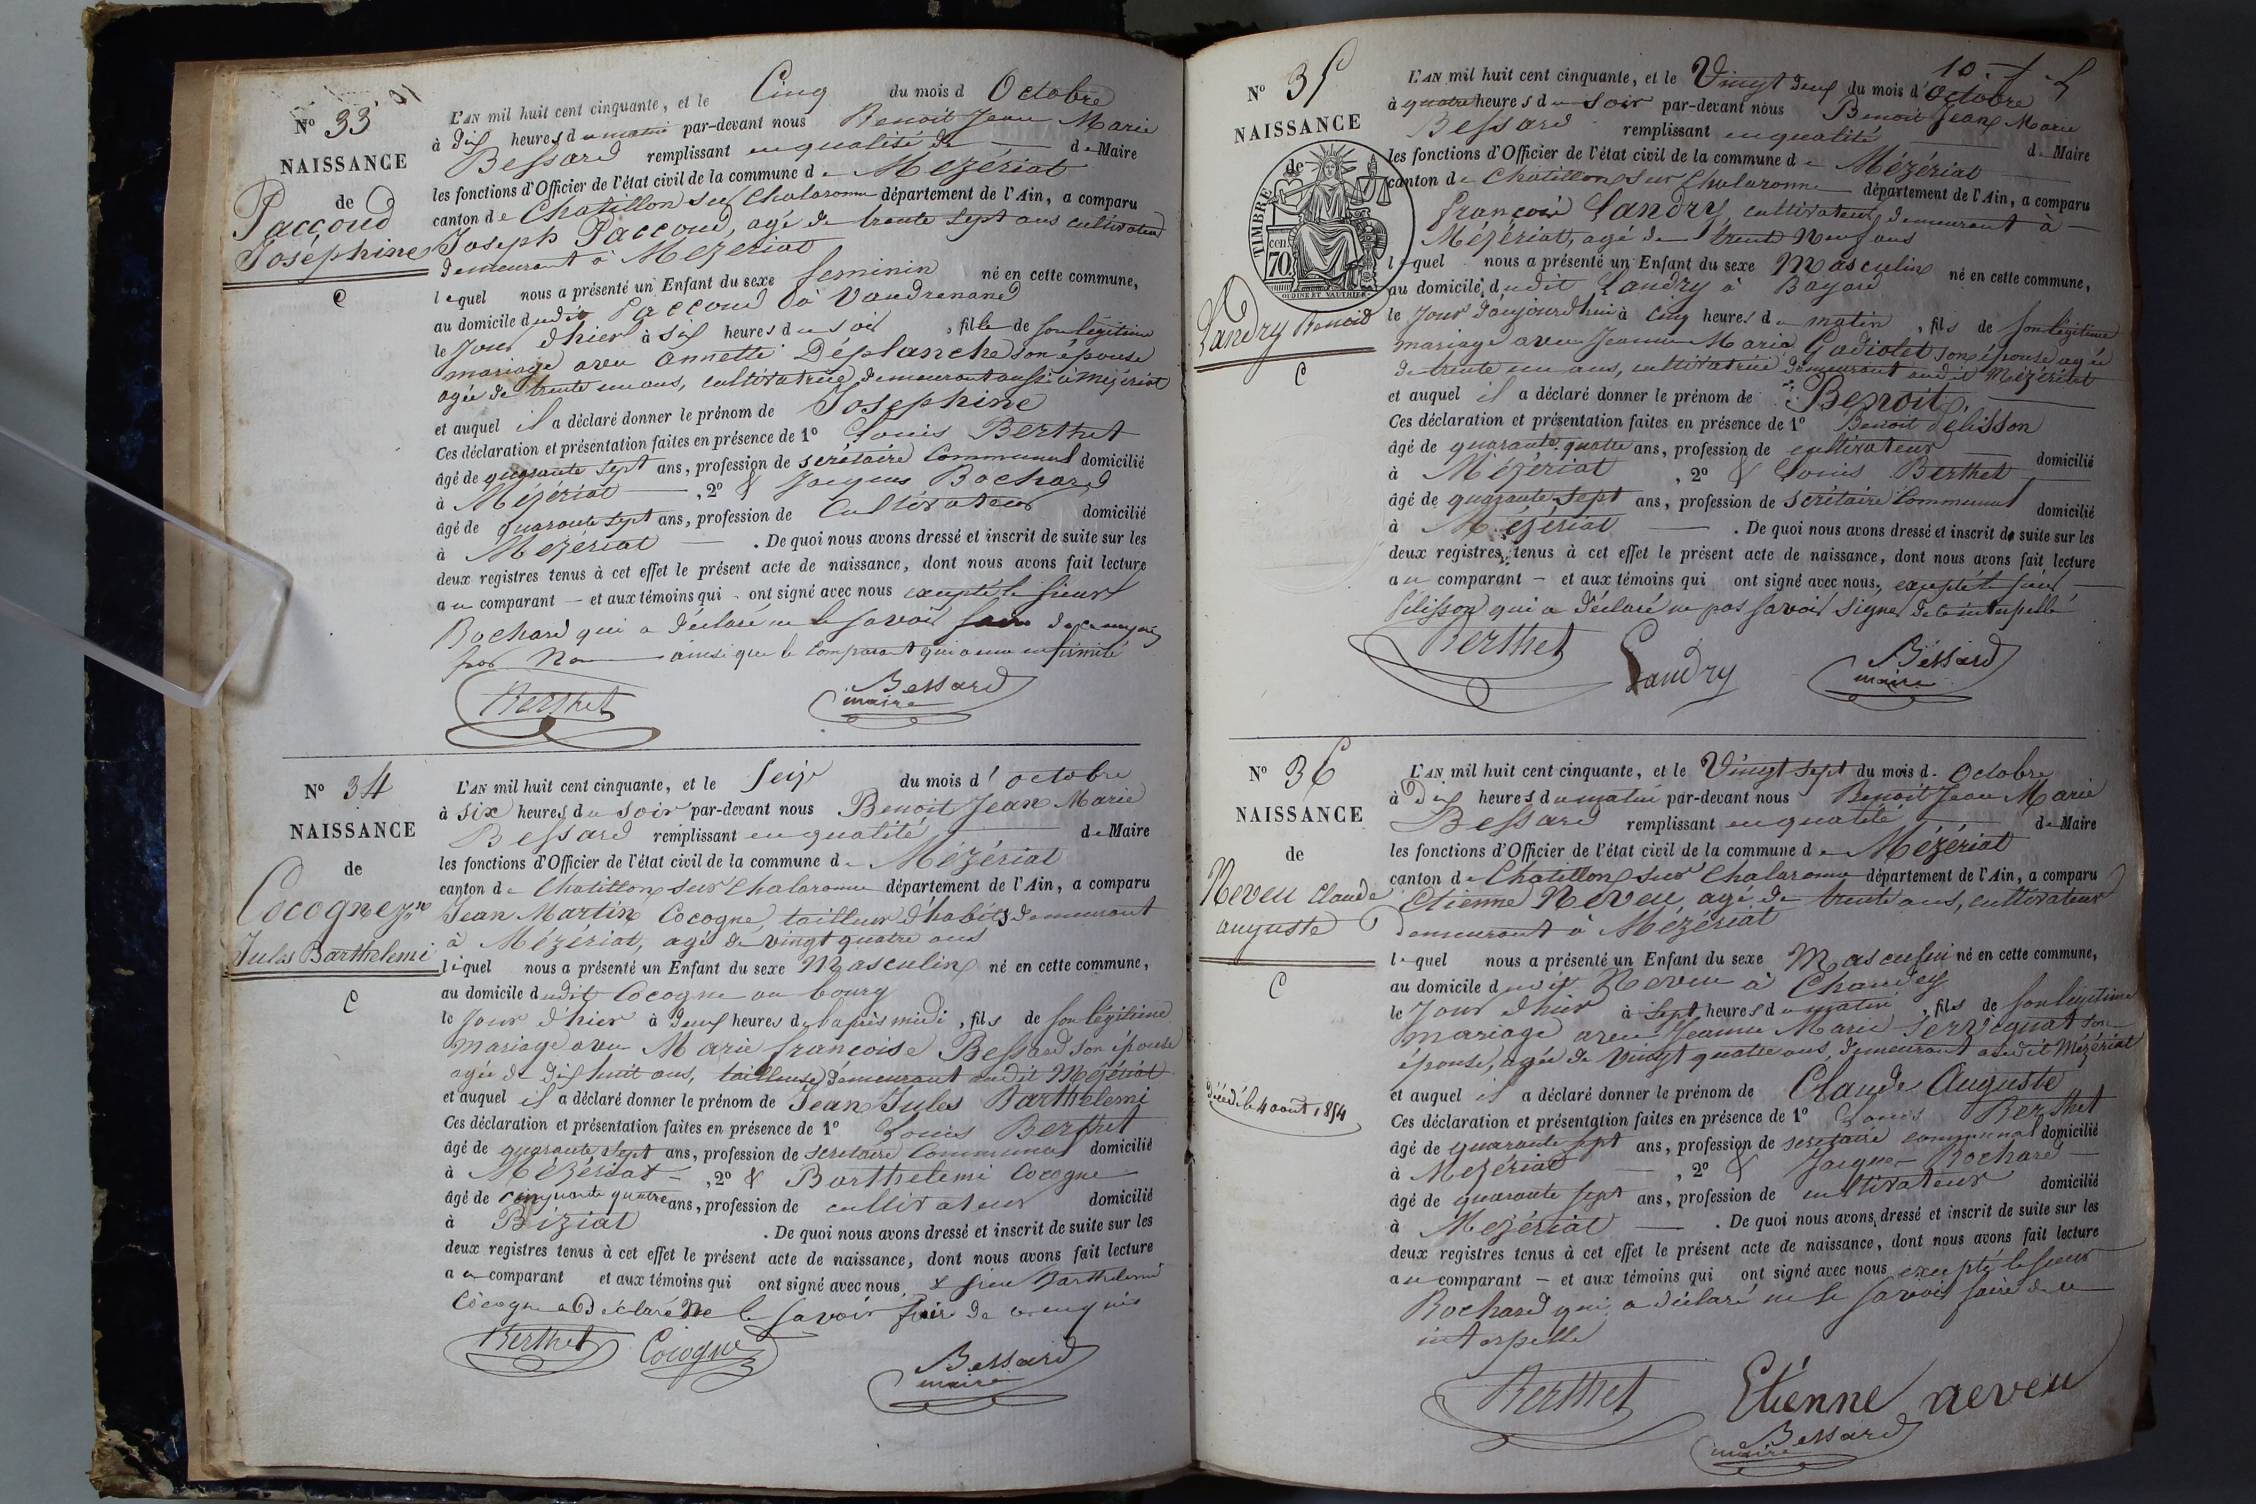 N° 33
NAISSANCE
de
Paccoud
Joséphine
C
L'AN mil huit cent cinquante, et le Cinq du mois d Octobre
à dix heures du matin par-devant nous Benoit Jean Marie
Bessard remplissant en qualité de — de Maire
les fonctions d'Officier de l'état civil de la commune de Mézériat
canton de Chatillon sur Chalaronne département de l'Ain, a comparu
Joseph Paccoud, agé de trente sept ans cultivateur
demeurant à Mezeriat
lequel nous a présenté un Enfant du sexe feminin né en cette commune,
au domicile dudit Paccoud à Vaudrenand
le Jour d'hier à six heures du soir, fille de son légitime
mariage avec Annette Déplanche son épouse
agée de trente un ans, cultivatrice, demeurant aussi à Mézériat
et auquel il a déclaré donner le prénom de Josephine
Ces déclaration et présentation faites en présence de 1° Louis Berthet
âgé de quarante sept ans, profession de secrétaire Communal domicilié
à Mézériat —, 2° & Jacques Bochard
âgé de quarante sept ans, profession de Cultivateur domicilié
à Mezériat — . De quoi nous avons dressé et inscrit de suite sur les
deux registres tenus à cet effet le présent acte de naissance, dont nous avons fait lecture
au comparant — et aux témoins qui ont signé avec nous excepté le sieur
Bochard qui a déclaré ne le savoir faire de ce enquis
par Nous ainsi que le comparant qui a une infirmité
Berthet
Bessard
maire
N° 34
NAISSANCE
de
Cocogne Jn
Jules Barthelemi
C
L'AN mil huit cent cinquante, et le Seize du mois d' octobre
à six heures du soir par-devant nous Benoit Jean Marie
Bessard remplissant en qualité — de Maire
les fonctions d'Officier de l'état civil de la commune de Mézériat
canton de Chatillon sur Chalaronne département de l'Ain, a comparu
Jean Martin Cocogne, tailleur d'habits demeurant
à Mézériat, agé de vingt quatre ans
lequel nous a présenté un Enfant du sexe Masculin né en cette commune,
au domicile dudit Cocogne au bourg
le Jour d'hier à deux heures de l'après midi, fils de son légitime
mariage avec Marie françoise Bessard son épouse
agée de dix huit ans, tailleuse demeurant audit Mézériat
et auquel il a déclaré donner le prénom de Jean Jules Barthelemi
Ces déclaration et présentation faites en présence de 1° Louis Berthet
âgé de quarante sept ans, profession de secretaire Communal domicilié
à Mézériat —, 2° & Barthelemi Cocogne
âgé de cinquante quatre ans, profession de cultivateur domicilié
à Biziat . De quoi nous avons dressé et inscrit de suite sur les
deux registres tenus à cet effet le présent acte de naissance, dont nous avons fait lecture
au comparant et aux témoins qui ont signé avec nous, & sieur Barthelemi
Cocogne a déclaré Ne le savoir faire de ce enquis
Berthet Cocogne
Bessard
maire
10
N° 35
NAISSANCE
de
TIMBRE
cen. 70.
OUDINE ET VAUTHIER
Landry Benoit
C
L'AN mil huit cent cinquante, et le Vingt deux du mois d' Octobre
à quatre heures du soir par-devant nous Benoit Jean Marie
Bessard remplissant en qualité — de Maire
les fonctions d'Officier de l'état civil de la commune de Mézériat
canton de Chatillon sur Chalaronne département de l'Ain, a comparu
françois Landry, cultivateur, demeurant à —
Mézériat, agé de trente Neuf ans
lequel nous a présenté un Enfant du sexe Masculin né en cette commune,
au domicile dudit Landry à Bayard
le Jour d'aujourd'hui à cinq heures du matin, fils de son légitime
mariage avec Jeanne Maria Gadiolet son épouse agée
de trente un ans, cultivatrice demeurant audit Mézériat
et auquel il a déclaré donner le prénom de Benoit.
Ces déclaration et présentation faites en présence de 1° Benoit félisson
âgé de quarante quatre ans, profession de cultivateur — domicilié
à Mézériat, 2° & Louis Berthet
âgé de quarante sept ans, profession de secrétaire Communal domicilié
à Mézériat — . De quoi nous avons dressé et inscrit de suite sur les
deux registres tenus à cet effet le présent acte de naissance, dont nous avons fait lecture
au comparant — et aux témoins qui ont signé avec nous, excepté le sieur —
félisson qui a déclaré ne pas savoir signer de ce interpellé
Berthet Landry Bessard
maire
N° 36
NAISSANCE
de
Neveu Claude
auguste
C
décédé le 4 aout 1854
L'AN mil huit cent cinquante, et le Vingt sept du mois d. Octobre
à Dix heures du matin par-devant nous Benoit Jean Marie
Bessard remplissant en qualité — de Maire
les fonctions d'Officier de l'état civil de la commune de Mézériat
canton de Chatillon sur Chalaronne département de l'Ain, a comparu
Etienne Neveu, agé de trente ans, cultivateur
demeurant à Mézériat
lequel nous a présenté un Enfant du sexe Masculin né en cette commune,
au domicile dudit Neveu à Chandey
le Jour d'hier à sept heures du matin, fils de son légitime
mariage avec Jeanne Marie Servignat son
épouse, agée de vingt quatre ans, demeurant audit Mézériat
et auquel il a déclaré donner le prénom de Claude Auguste
Ces déclaration et présentation faites en présence de 1° Louis Berthet
âgé de quarante sept ans, profession de secretaire communal domicilié
à Mézériat —, 2° & Jacques Bochard —
âgé de quarante sept ans, profession de cultivateur domicilié
à Mezériat — . De quoi nous avons dressé et inscrit de suite sur les
deux registres tenus à cet effet le présent acte de naissance, dont nous avons fait lecture
au comparant — et aux témoins qui ont signé avec nous excepté le sieur
Bochard qui a déclaré ne le savoir faire de ce
interpellé
Berthet Etienne neveu
Bessard
maire